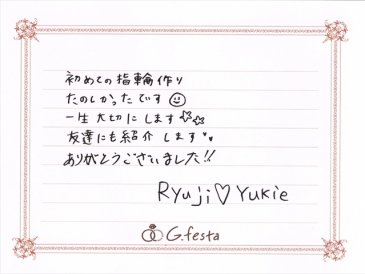 初めての指輪作り
たのしかったです☺
一生大切にします☆☆
友達にも紹介します♥♥
ありがとうございました!!
Ryuji♡Yukie
G.festa